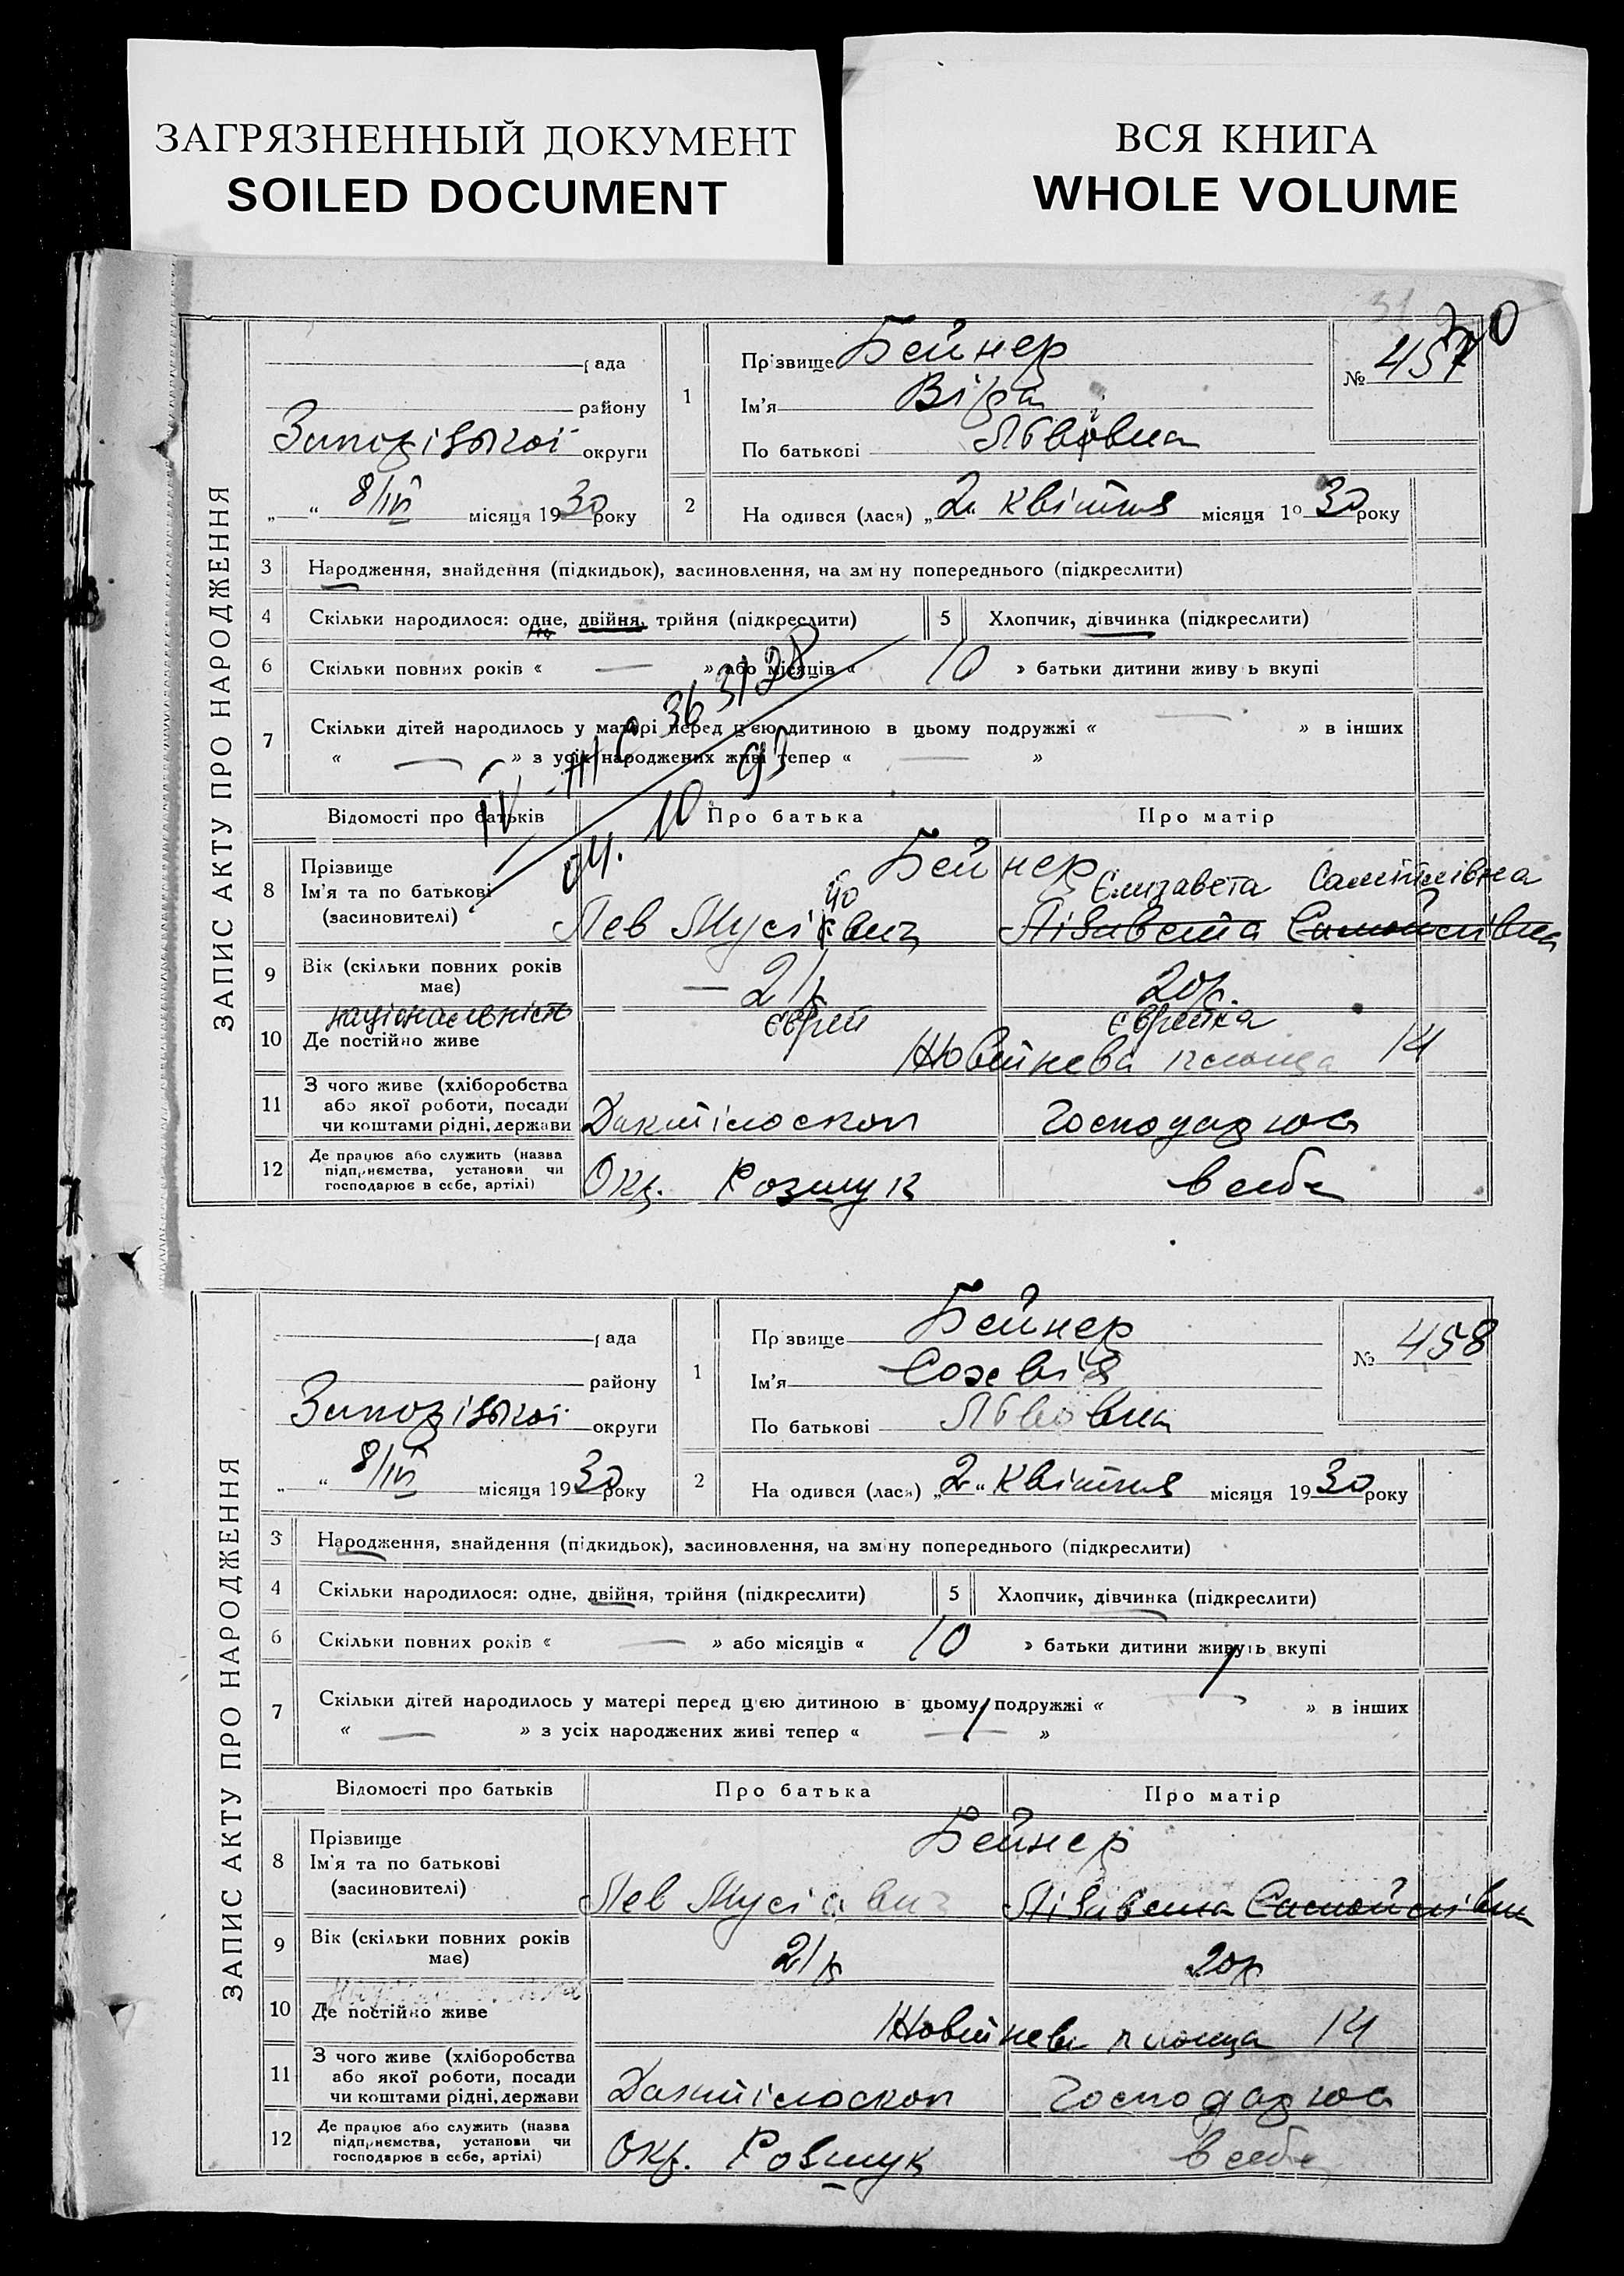 ЗАГРЯЗНЕННЫЙ ДОКУМЕНТ
SOILED DOCUMENT
ВСЯ КНИГА
WHOLE VOLUME
31
ЗАПИС АКТУ ПРО НАРОДЖЕННЯ
рада
району
Запорізької округи
„ “ 8/IV місяця 1930 року
1
Прізвище Бейнер
Ім'я Віра
По батькові Львовна
№ 457
2
На одився (лася) „2“ квітня місяця 1930 року
3 Народження, знайдення (підкидьок), засиновлення, на зм ну попереднього (підкреслити)
4 Скільки народилося: одне, двійня, трійня (підкреслити)
5 Хлопчик, дівчинка (підкреслити)
6 Скільки повних років « — » або місяців « 10 » батьки дитини живу ь вкупі
7 Скільки дітей народилось у матері перед цією дитиною в цьому подружжі « — » в інших
« — » з усіх народжених живі тепер « — »
IV-
363128
04. 10 93
Відомості про батьків
Про батька
Про матір
8 Прізвище
Ім'я та по батькові
(засиновителі)
Бейнер
Єлизавета Самійлівна
Лев Мусієвич
йо
Лізавета Самойлівна
9 Вік (скільки повних років
має)
21р
20р.
національність
єврей
єврейка
10 Де постійно живе
Жовтнева площа 14
11 З чого живе (хліборобства
або якої роботи, посади
чи коштами рідні, держави
Дактілоскоп
Господарює
12 Де працює або служить (назва
підприємства, установи чи
господарює в себе, артілі)
Окр. Розшук
в себе
ЗАПИС АКТУ ПРО НАРОДЖЕННЯ
рада
району
Запорізької округи
„ “ 8/IV місяця 1930 року
1
Пр звище Бейнер
Ім'я
По батькові Львовна
№ 458
2
На одився (лася) „2“ квітня місяця 1930 року
3 Народження, знайдення (підкидьок), засиновлення, на зміну попереднього (підкреслити)
4 Скільки народилося: одне, двійня, трійня (підкреслити)
5 Хлопчик, дівчинка (підкреслити)
6 Скільки повних років « — » або місяців « 10 » батьки дитини живуть вкупі
7 Скільки дітей народилось у матері перед цією дитиною в цьому подружжі « — » в інших
« — » з усіх народжених живі тепер « — »
Відомості про батьків
Про батька
Про матір
8 Прізвище
Ім'я та по батькові
(засиновителі)
Бейнер
Лев Мусієвич
Лізавета Самойлівна
9 Вік (скільки повних років
має)
21р
20р
10 Де постійно живе
Жовтнева площа 14
11 З чого живе (хліборобства
або якої роботи, посади
чи коштами рідні, держави
Дактілоскоп
Господарює
12 Де працює або служить (назва
підприємства, установи чи
господарює в себе, артілі)
Окр. Розшук
в себе